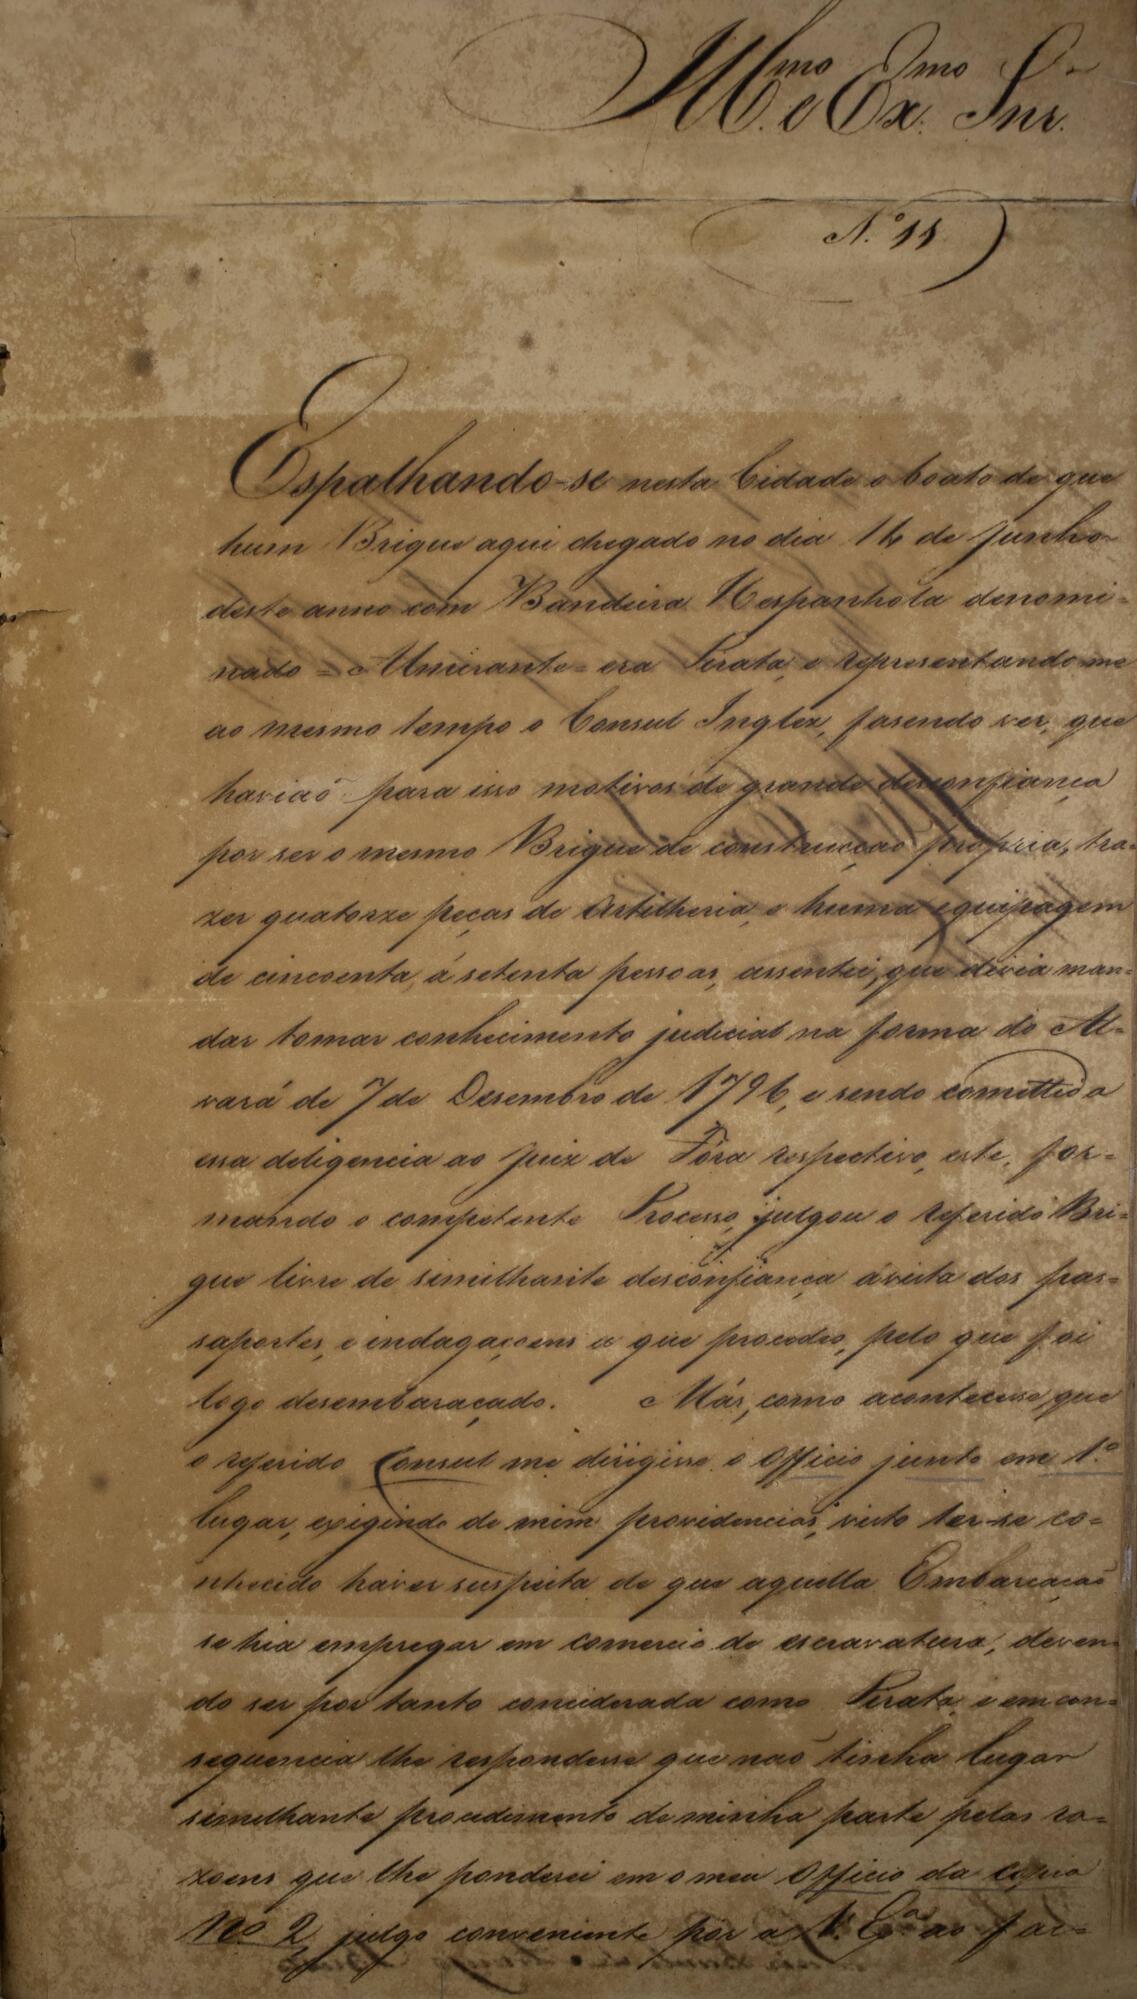 Ill.mo e Ex.mo Snr.
N.º 11
Espalhando-se nesta Cidade o boato de que
hum Brigue aqui chegado no dia 16 de Junho
deste anno com Bandeira Hespanhola denomi-
nado = Almirante = era Pirata, e representando me
ao mesmo tempo o Consul Inglez, fasendo ver, que
haviaõ para isso motivos de grande desconfiança
por ser o mesmo Brigue de construcçaõ propria, tra-
zer quatorze peças de Artilheria, e huma equipagem
de cincoenta, á setenta pessoas, assentei, que divia man-
dar tomar conhecimento judicial na forma do Al-
vará de 7 de Desembro de 1796, e sendo comettida
essa deligencia ao Juiz de Fóra respectivo, este, for-
mando o competente Processo, julgou o referido Bri-
gue livre de similhante desconfiança ávista dos pas-
saportes, e indagaçoens a que procedeo, pelo que foi
logo desembaraçado. Más, como acontecesse que
o referido Consul me dirigisse o Officio junto em 1.º
lugar, exigindo de mim providencias, visto ter-se co-
nhecido haver suspeita de que aquella Embarcaçaõ
se hia empregar em comercio de escravatura, deven-
do ser por tanto conciderada como Pirata, e em con-
sequencia lhe respondesse que naõ tinha lugar
similhante procedimento de minha parte pelas ra-
zoens que lhe ponderei em o meu Officio da copia
N.º 2, julgo conveniente por a V. Ex.ª ao fac-